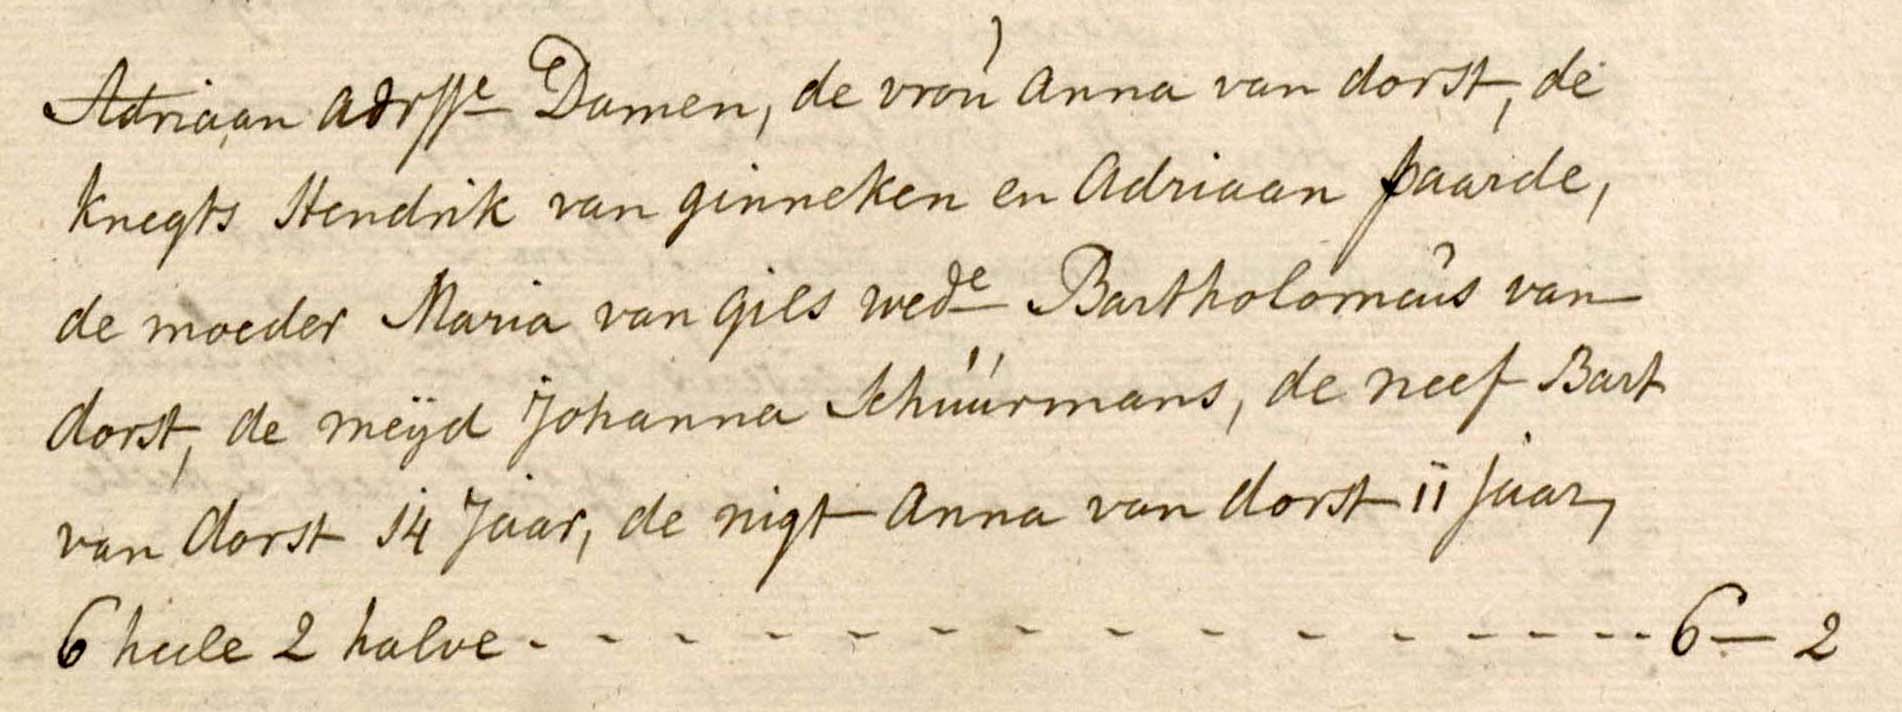 Adriaan adrsse Damen, de vrou Anna van dorst, de
knegts Hendrik van ginneken en Adriaan paarde,
de moeder Maria van Gils wede Bartholomeus van
dorst, de meijd Johanna Schuurmans, de neef Bart
van dorst 14 Jaar, de nigt Anna van dorst 11 jaar,
6 heele 2 halve - - - - - - - - - - - - - - - - 6 — 2